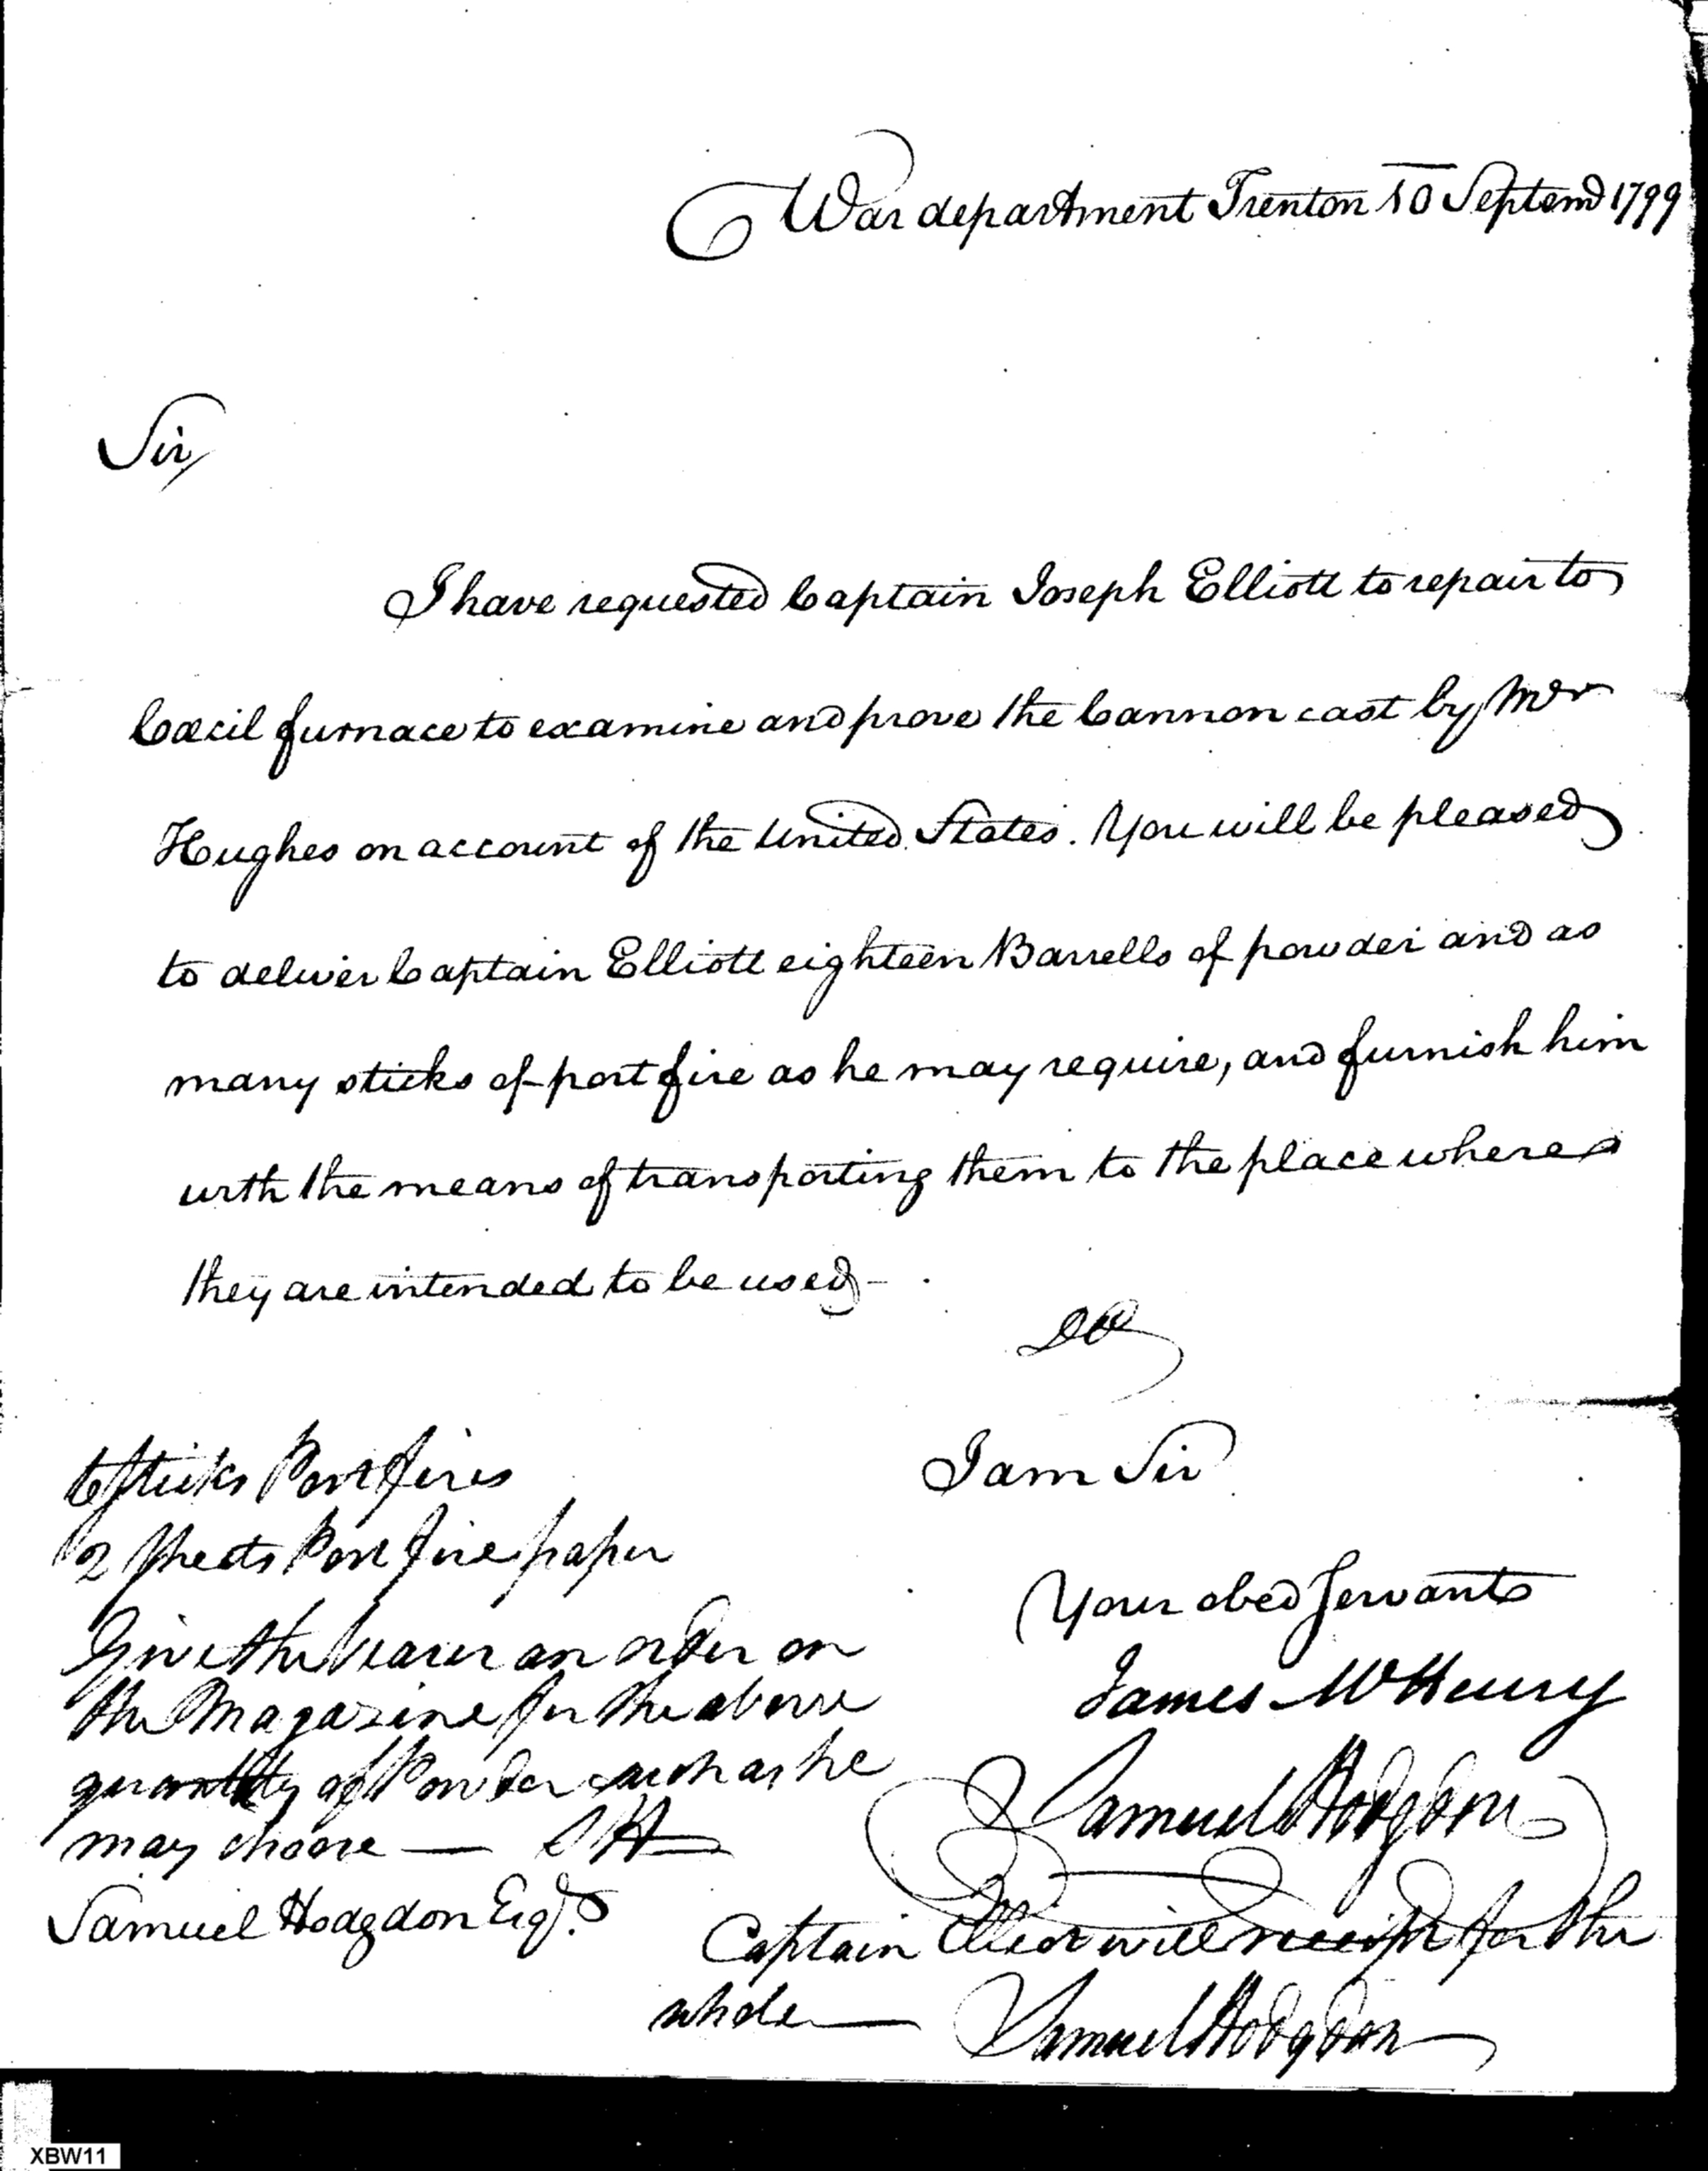 War department Trenton 10 Septemb 1799
Sir,
I have requested Captain Joseph Elliott to repair to
Cæcil furnace to examine and prove the Cannon cast by Mr
Hughes on account of the United States. You will be pleased
to deliver Captain Elliott eighteen Barrells of powder and as
many sticks of port fire as he may require, and furnish him
with the means of transporting them to the place where
they are intended to be used -
I am Sir
Your obed Servant
James McHenry
Sticks Port fires
2 Sheets Port fire paper
Give the bearer an order on
the Magazine for the above
quantity of Powder such as he
may choose — SH
Samuel Hodgdon Esqr.
Samuel Hodgdon
Captain Elliot will receipt for the
whole — Samuel Hodgdon
XBW11